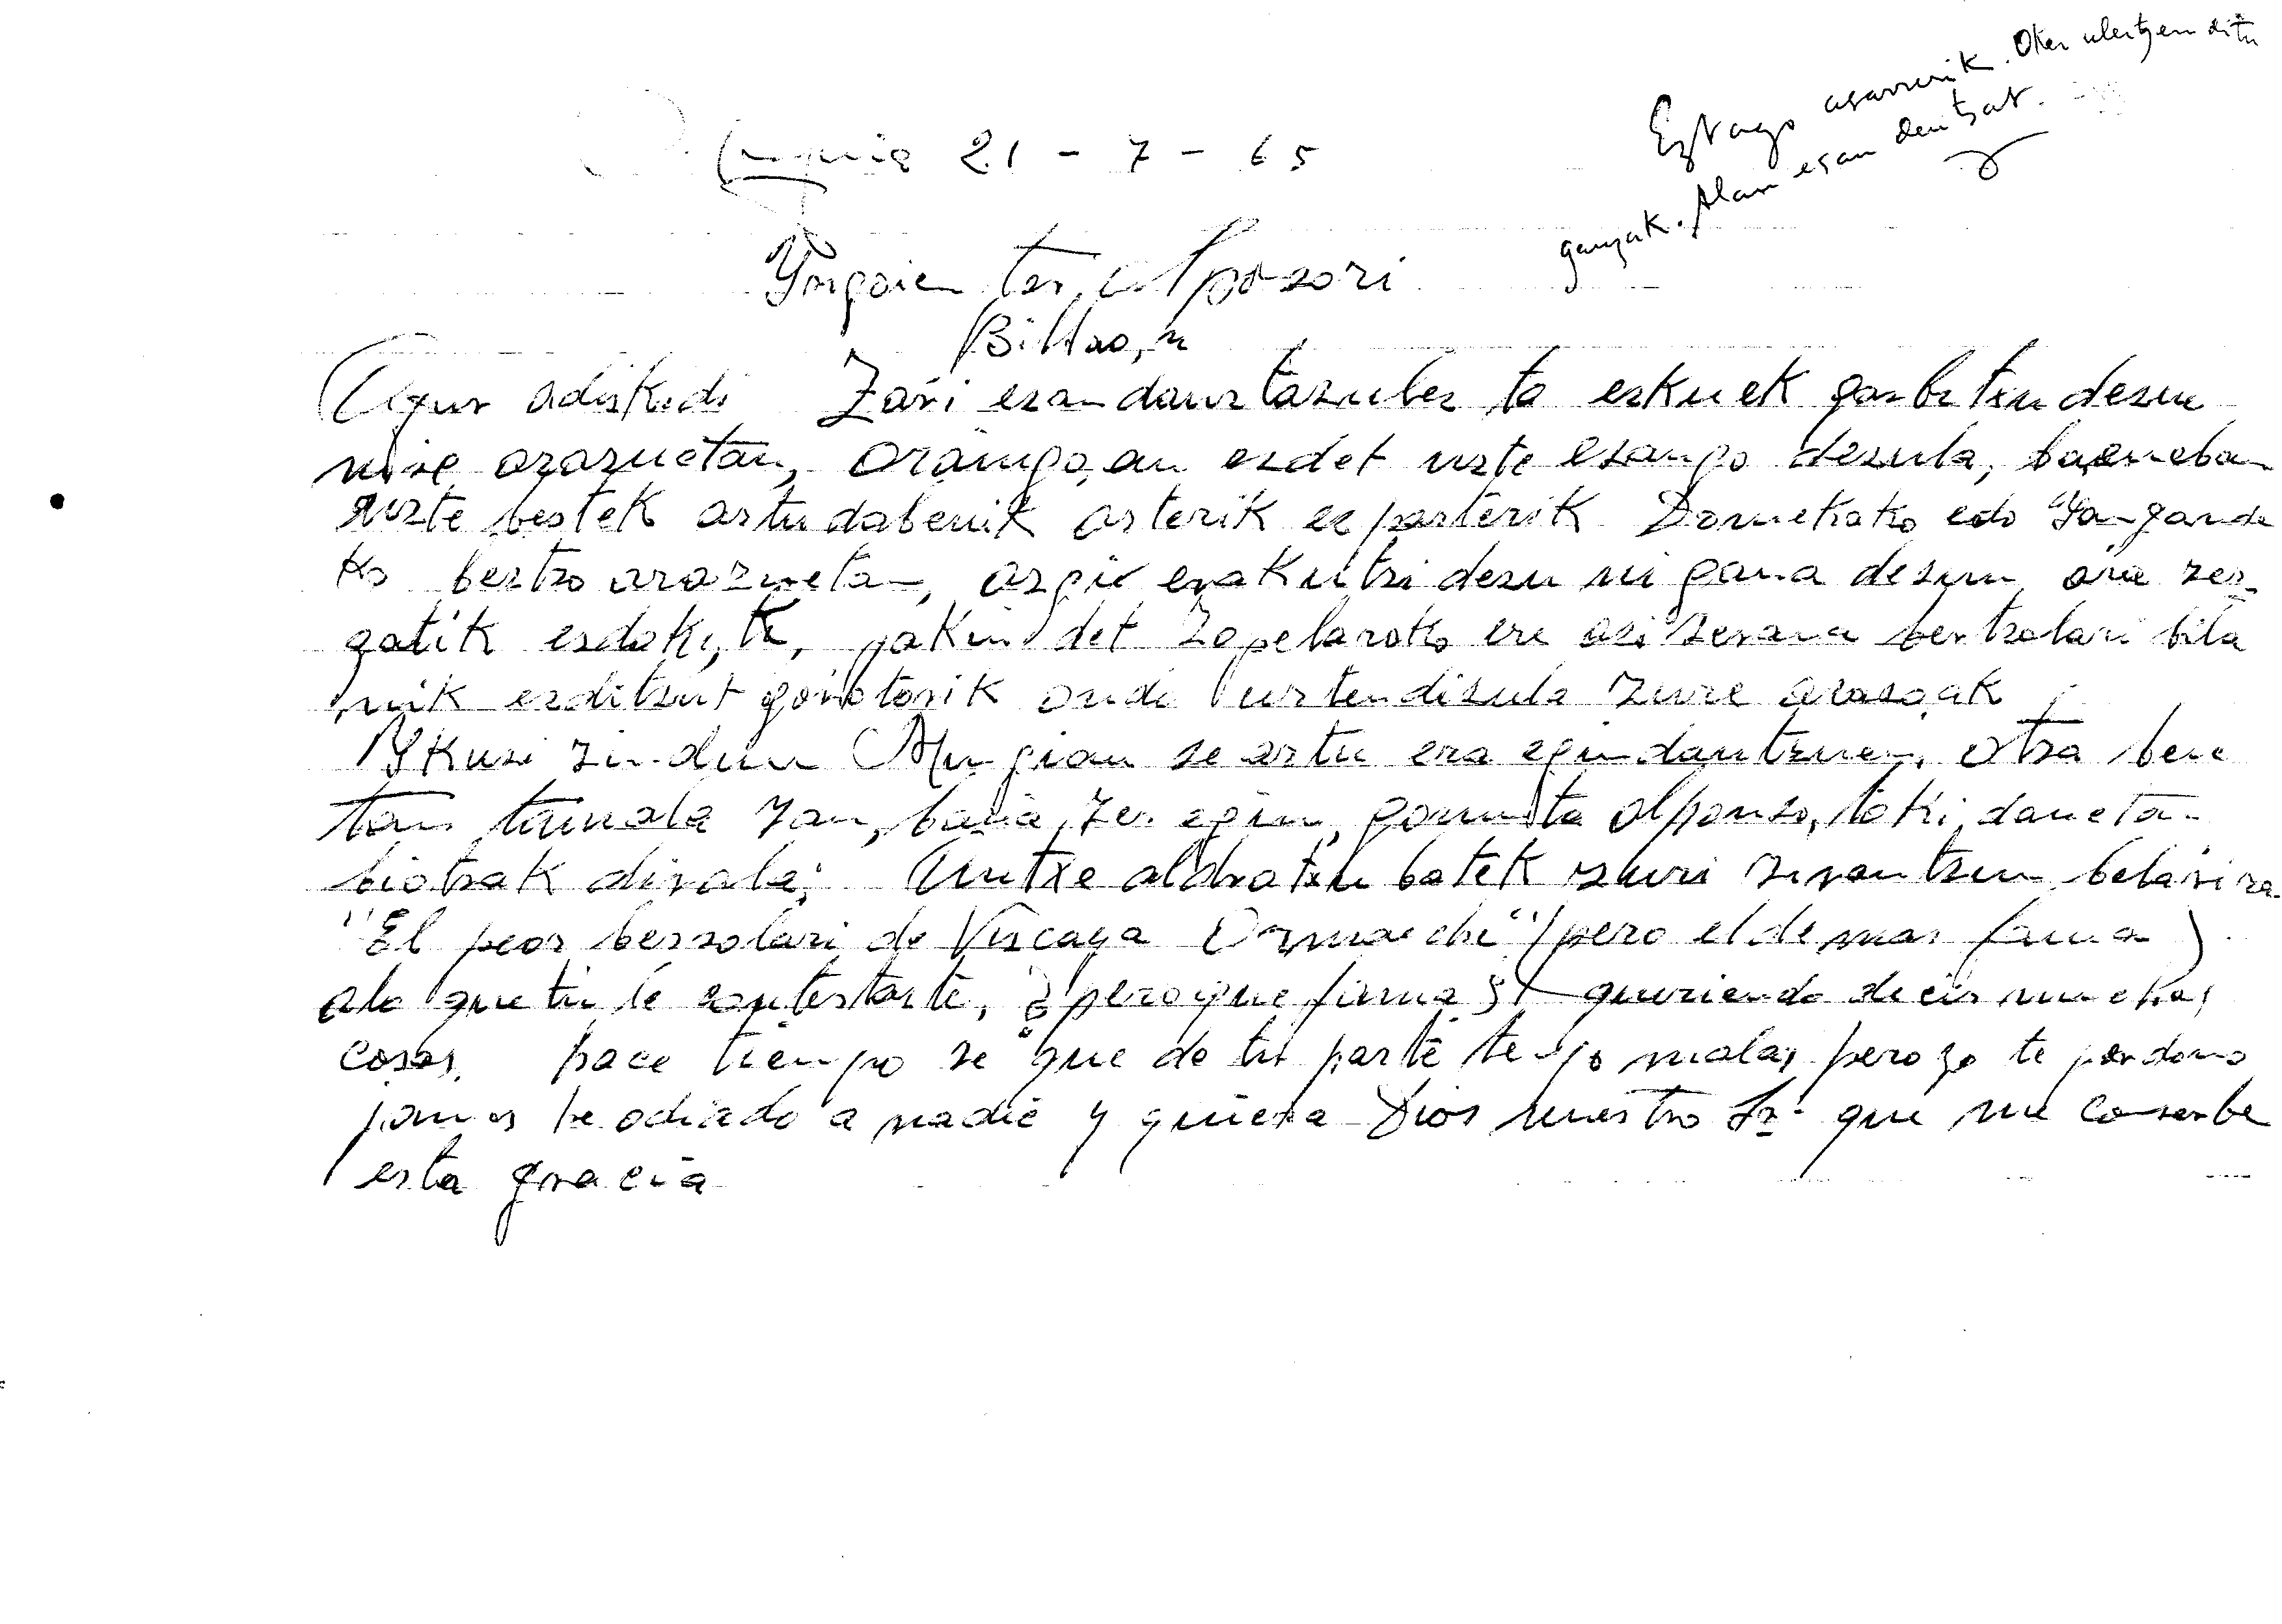 Eztago asarrerik. Oker ulertzen ditu
gauzak. Alan esan deutsat.
21 - 7 - 65
Yrigoien tar, Alposori
Bilbao, n
Agur adiskidi Zari esandauztazulez ta eskuek garbitxu desun
nire arazuetan, oraingo, an esdet uste esango desula, ba,eneban
uste bestek artudabenik asterik ez parterik Domekako edo Yaungande
ko bertzo arazueta-, argir erakutzi desu ni gana desun, orre zer
gatik esdaki,t, jakin det Sopelarako ere asi zerana bertzolari bila
nik esditzut gorrotorik ondi urtendizula zure arasoak
Ykusi zindun Mungian se artu era egindautzuen, otza bene
tan tamala zan, baña, zer egin, gomuta Alponso, toki danetan
biotzak dirala; Antxe aldratxu batek zuri zirautzun belarira
"El peor berzolari de Viscaya Ormaeche" (pero el de mas fama)
alo que tu le contestaste, ¿pero que fama? queriendo decir muchas
cosas, hace tiempo se que de tu parte tengo malas pero yo te perdono
jamas he odiado a nadie y quiera Dios nuestro Sr. que me conserbe
esta gracia